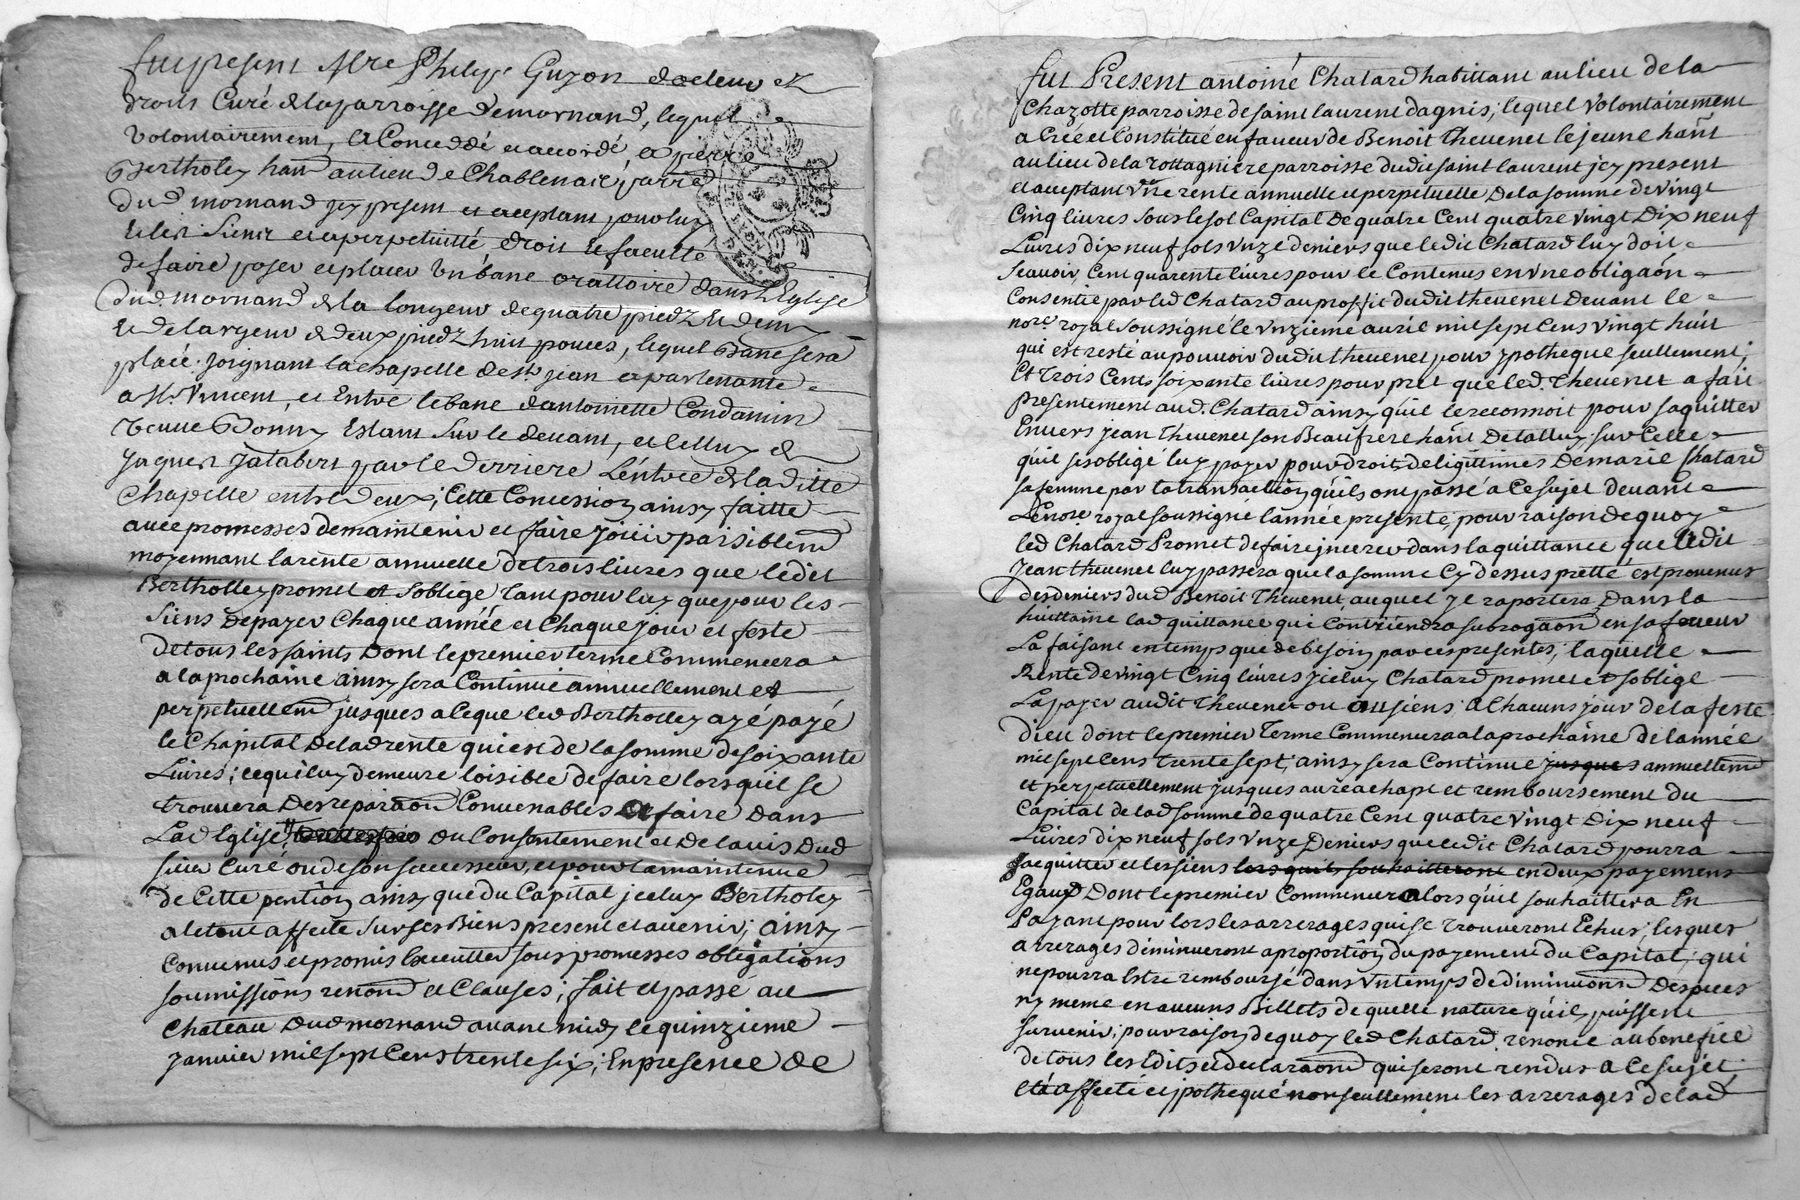 fut present Mre Philipe Guzon docteur et
droits Curé de la parroisse de mornand, lequel
volontairement, a Conceddé et accordé, a pierre
Bertholey hant au lieu de Chablenas, parre
dud mornand jcy present et acceptant pour luy
et les Siens et a perpetuitté droit et faculté
de faire poser et placer un banc orattoire dans l'Eglise
dud mornand de la longeur de quatre piedz et demy
et de largeur de deux piedz huit pouces, lequel Banc sera
placé joignant la chapelle de st jean apartenante
a Mr Vincent, et Entre le banc d'antoinette Condamin
veuve Bonny Estant sur le devant, et celluy de
Jaques Jalabert par le derriere L'entrée de la ditte
Chapelle entre deux; Cette Concession ainsy faitte
avec promesses de maintenir et faire Joüir paisiblemt
moyennant la rente annuelle de trois livres que ledit
Bertholley promet et s'oblige tant pour luy que pour les
siens de payer Chaque année et Chaque jour et feste
de tous les saints Dont le premier terme Commencera
a la prochaine ainsy sera Continué annuellement et
perpetuellemt jusques a Ceque led Bertholley ayé payé
le Chapital de lad rente qui est de la somme de soixante
Livres; ce qui luy demeure loisible de faire lors qu'il se
trouvera Des reparaõns Convenables a faire dans
Lad Eglise du Consentement et de lavis dud
sieur Curé ou de son successeur, et pour la maintenue
de Cette pention ainsy que du Capital jceluy Bertholey
a le tout affecté sur ses Biens present et avenir; ainsy
Convenus et promis Executter sous promesses obligations
soumissions renonõn et Clauses; fait et passé au
Chateau dud mornand avant midy le quinzieme
Janvier mil sept Cens trente six; En presence de
fut Present antoine Chatard habittant au lieu de la
Chazotte parroisse de saint laurent dagnis, lequel volontairement
a Créé et Constitué en faveur de Benoit Thevenet le jeune hant
au lieu de la rottagniere parroisse dudit saint laurent jcy present
et acceptant une rente annuelle et perpetuelle de la somme de vingt
Cinq livres sous le sol Capital de quatre Cent quatre vingt Dix neuf
Livres dix neuf sols unze deniers que ledit Chatard luy doit
scavoir, Cent quarente livres pour le Contenus en une obligaõn
Consentie par led Chatard au proffit dudit thevenet Devant le
nore royal soussigné le unzieme avril mil sept Cens vingt huit
qui est resté au pouvoir dudit thevenet pour ypotheque seullement;
Et trois Cents soixante livres pour pret que led. Thevenet a fait
presentement aud. Chatard ainsy qu'il le reconnoit pour saquitter
Envers Jean thevenet son Beaufrere hant de talluy sur Celle
qu'il ses obligé luy payer pour droits de ligittimes De marie Chatard
sa femme par la transaction qu'ils ont passé a Ce sujet devant
Le nore royal soussigné l'année presente, pour raison de quoy
led Chatard Promet de faire jncerer dans la quittance que ledit
Jean thevenet luy passera que la somme Cy dessus pretté est provenus
des deniers dud Benoit Thevenet, auquel jl raportera Dans la
huittaine lad quittance qui Contriendra subrogaõn en sa faveur
La faisant en temps que de besoin par ces presentes; laquelle
Rente de vingt Cinq livres jceluy Chatard promet et s'oblige
La payer audit Thevenet ou aux siens a Chacuns jour de la feste
dieu dont le premier terme Commencera a la prochaine de lannée
mil sept Cens trente sept, ainsy sera Continué jusques annuellemt
et perpetuellement jusques au reachapt et remboursement du
Capital de lad somme de quatre Cent quatre vingt Dix neuf
Livres dix neuf sols unze Deniers que ledit Chatard pourra
sacquitter et les siens lors quils souhaitteront en deux payemens
Egaux Dont le premier Commencera lors qu'il souhaittera En
Payant pour lors les arrerages qui se trouveront Echus, lesques
arrerages diminueront a proportion du payement du Capital, qui
ne pourra Estre remboursé dans un temps de diminuõns Despeces
ny meme en aucuns Billets de quelle nature qu'il puissent
survenir; pour raison de quoy led Chatard. renonce au benefice
de tous les Edits et declaraõns qui seront rendus a Ce sujet
et a affecté et jpothequé non seullement les arrerages de lad